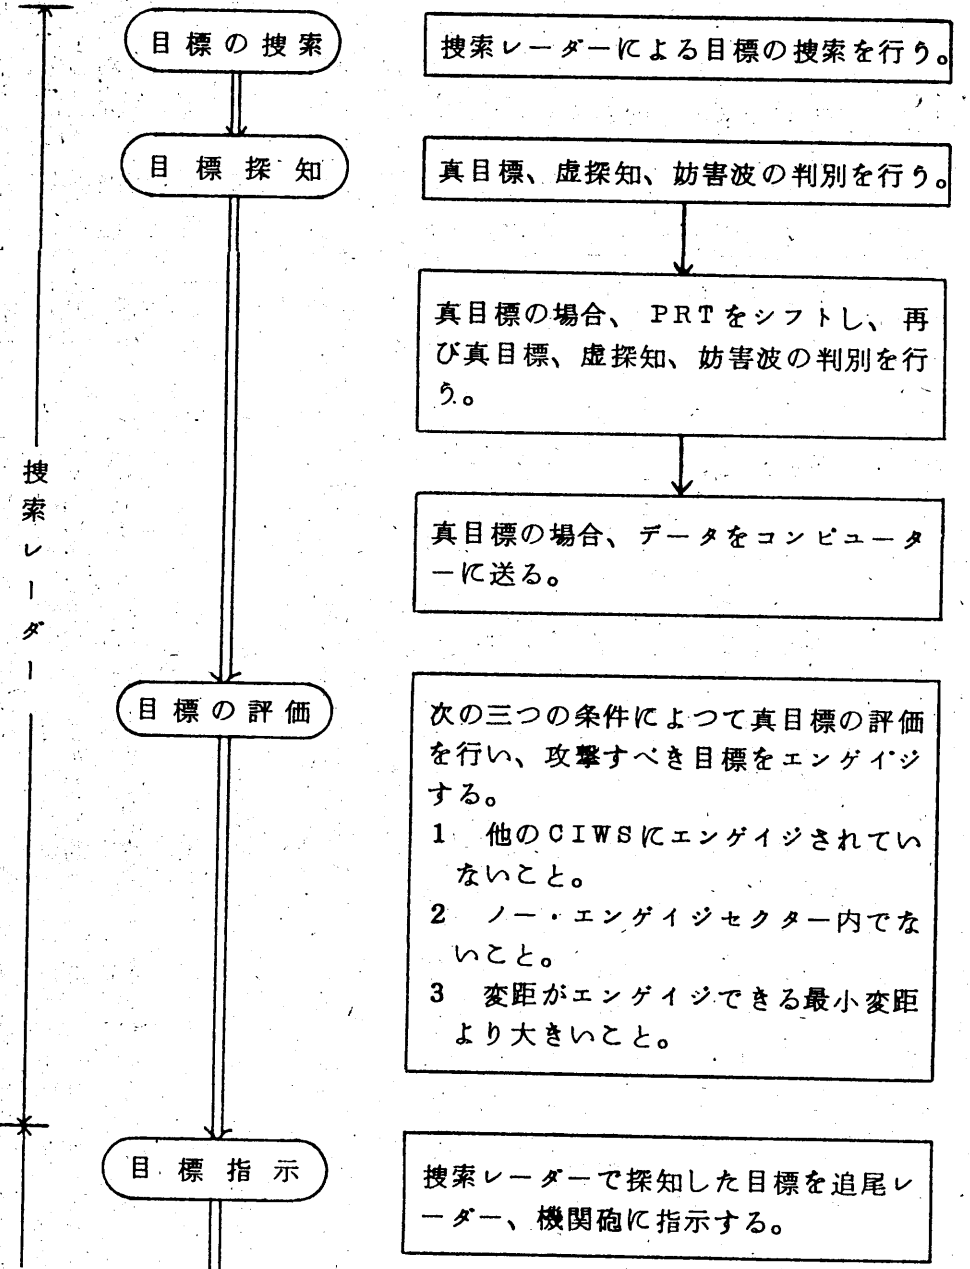 目標の捜索
捜索レーダーによる目標の捜索を行う。
目標探知
真目標、虚探知、妨害波の判別を行う。
真目標の場合、PRTをシフトし、再
び真目標、虚探知、妨害波の判別を行
う。
真目標の場合、データをコンピュータ
ーに送る。
捜索レーダー
目標の評価
次の三つの条件によつて真目標の評価
を行い、攻撃すべき目標をエンゲイジ
する。
1 他のCIWSにエンゲイジされてい
ないこと。
2 ノー・エンゲイジセクター内でな
いこと。
3 変距がエンゲイジできる最小変距
より大きいこと。
目標指示
捜索レーダーで探知した目標を追尾レ
ーダー、機関砲に指示する。